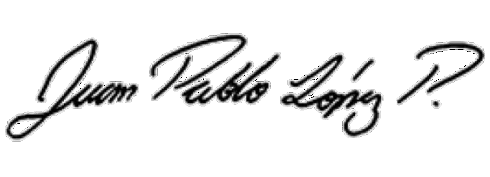 Juan Pablo López P.